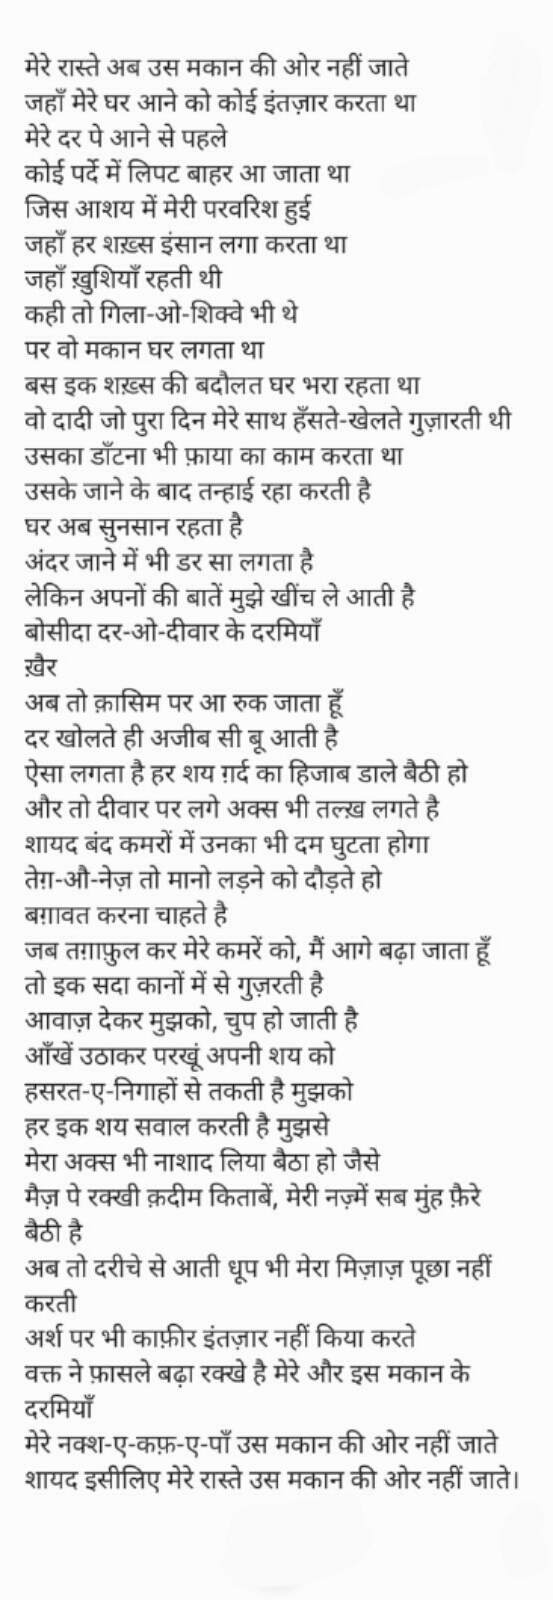 मेरे रास्ते अब उस मकान की ओर नहीं जाते
जहाँ मेरे घर आने को कोई इंतज़ार करता था
मेरे दर पे आने से पहले
कोई पर्दे में लिपट बाहर आ जाता था
जिस आशय में मेरी परवरिश हुई
जहाँ हर शख़्स इंसान लगा करता था
जहाँ ख़ुशियाँ रहती थी
कही तो गिला-ओ-शिक्वे भी थे
पर वो मकान घर लगता था
बस इक शख़्स की बदौलत घर भरा रहता था
वो दादी जो पुरा दिन मेरे साथ हँसते-खेलते गुज़ारती थी
उसका डाँटना भी फ़ाया का काम करता था
उसके जाने के बाद तन्हाई रहा करती है
घर अब सुनसान रहता है
अंदर जाने में भी डर सा लगता है
लेकिन अपनों की बातें मुझे खींच ले आती है
बोसीदा दर-ओ-दीवार के दरमियाँ
ख़ैर
अब तो क़ासिम पर आ रुक जाता हूँ
दर खोलते ही अजीब सी बू आती है
ऐसा लगता है हर शय ग़र्द का हिजाब डाले बैठी हो
और तो दीवार पर लगे अक्स भी तल्ख़ लगते है
शायद बंद कमरों में उनका भी दम घुटता होगा
तेग़-औ-नेज़ तो मानो लड़ने को दौड़ते हो
बग़ावत करना चाहते है
जब तग़ाफ़ुल कर मेरे कमरें को, मैं आगे बढ़ा जाता हूँ
तो इक सदा कानों में से गुज़रती है
आवाज़ देकर मुझको, चुप हो जाती है
आँखें उठाकर परखूं अपनी शय को
हसरत-ए-निगाहों से तकती है मुझको
हर इक शय सवाल करती है मुझसे
मेरा अक्स भी नाशाद लिया बैठा हो जैसे
मैज़ पे रक्खी क़दीम किताबें, मेरी नज़्में सब मुंह फ़ैरे
बैठी है
अब तो दरीचे से आती धूप भी मेरा मिज़ाज़ पूछा नहीं
करती
अर्श पर भी काफ़ीर इंतज़ार नहीं किया करते
वक्त ने फ़ासले बढ़ा रक्खे है मेरे और इस मकान के
दरमियाँ
मेरे नक्श-ए-कफ़-ए-पाँ उस मकान की ओर नहीं जाते
शायद इसीलिए मेरे रास्ते उस मकान की ओर नहीं जाते।